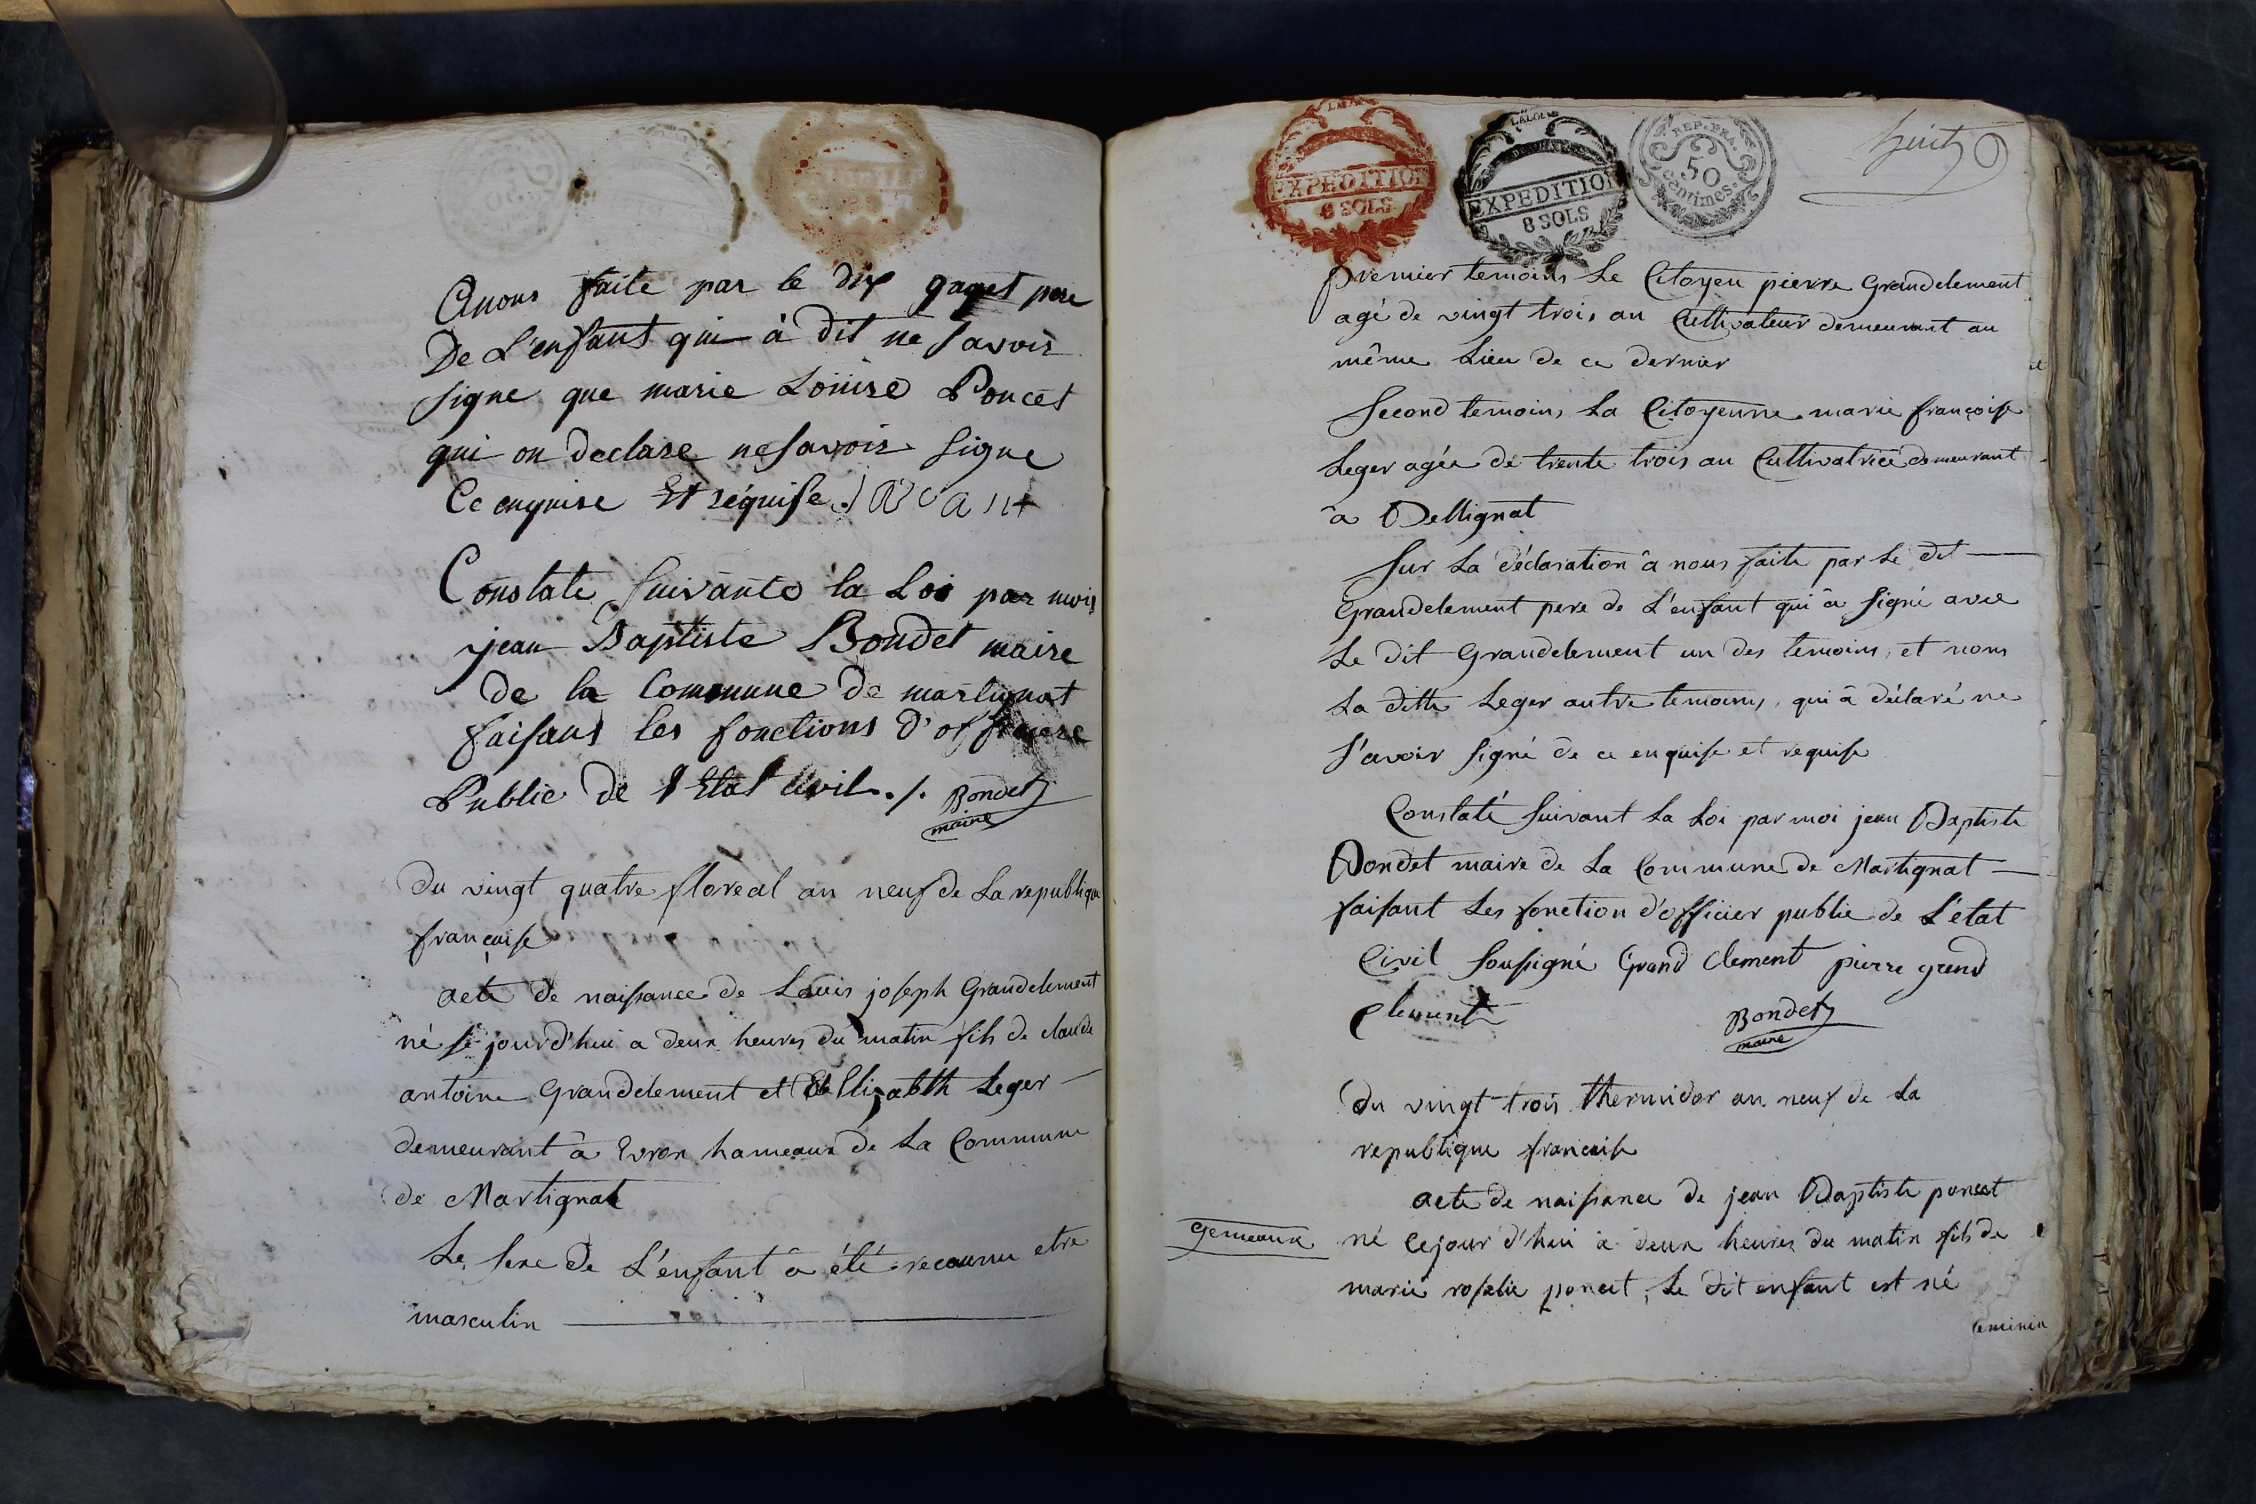 Anous faite par le dit gaget pere
De L'enfant qui à dit ne savoir
signe que marie Loüise Poncet
qui on declare ne savoir signe
Ce enquise Et réquise./.
Constate suivante la Loi par mois
jean Baptiste Bondet maire
de la Commune de martignat
faisant les fonctions d'officiere
Public de l'Etat Civil ./. Bondet
maire
Du vingt quatre floreal an neuf de La republique
françaisse
acte de naissance de Louis joseph Grandclement
né ce jourd'hui a deux heures du matin fils de claude
antoine Grandclement et Ellizabth Leger
demeurant â Evron hameaux de La Commune
de Martignat
Le sexe de L'enfant â été reconnu etre
masculin
LALOI
EXPEDITION
8 SOLS
LALOI
EXPEDITION
8 SOLS
REP. FRA.
50
centimes.
huit
premier temoins Le Citoyen pierre Grandclement
agé de vingt trois an Cultivateur demeurant au
même Lieu de ce dernier
Second temoins La Citoyenne marie françoise
Leger agée de trente trois an Cultivatrice demeurant
â Bellignat
Sur La déclaration â nous faite par Le dit
Grandclement pere de L'enfant qui â signé avec
Le dit Grandclement un des temoins, et nons
La ditte Leger autre temoins, qui â déclaré ne
s'avoir signé de ce enquise et requise
Constaté suivant La Loi par moi jean Baptiste
Bondet maire de La Commune de Martignat
faisant Les fonction d'officier public de L'état
Civil soussigné Grand Clement pierre grend
Clement Bondet
maire
Du vingt trois thermidor an neuf de La
republique françaisse
acte de naissance de jean Baptiste poncet
Gemeaux
né Cejour d'hui a deux heures du matin fils de
marie rosalie poncet, Le dit enfant est né